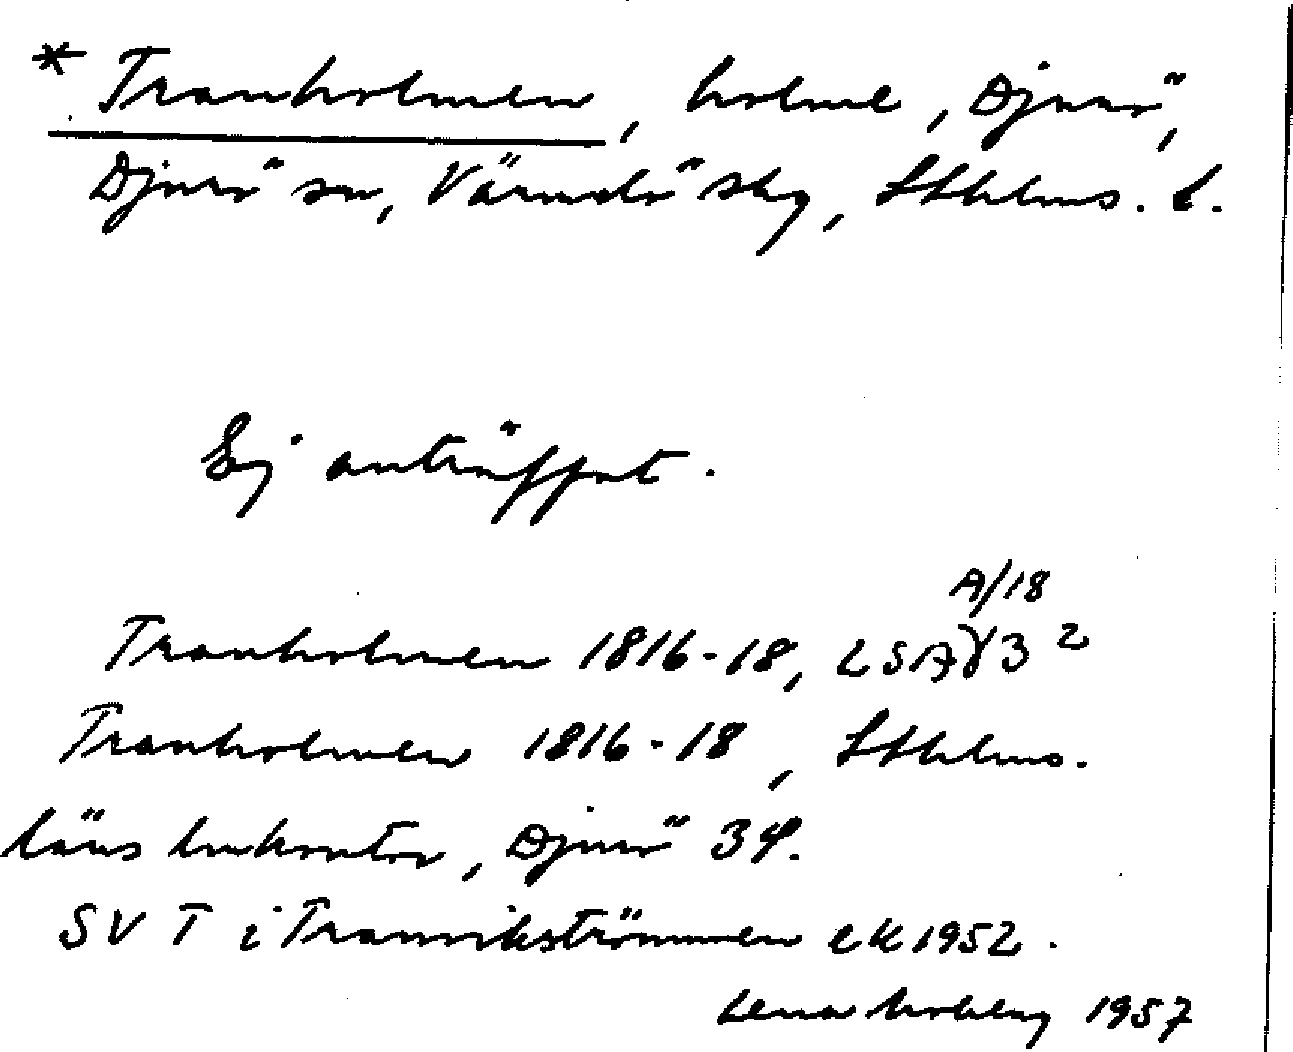 * Tranholmen, holme, Djurö,
Djurö sn, Värmdö skg, Sthlms. l.
Ej anträffat.
A/18
Tranholmen 1816-18, LSA γ 3 2
Tranholmen 1816-18, Sthlms.
läns lmkontor, Djurö 34.
SV T i Tranvikströmmen ek 1952.
Lena 1957